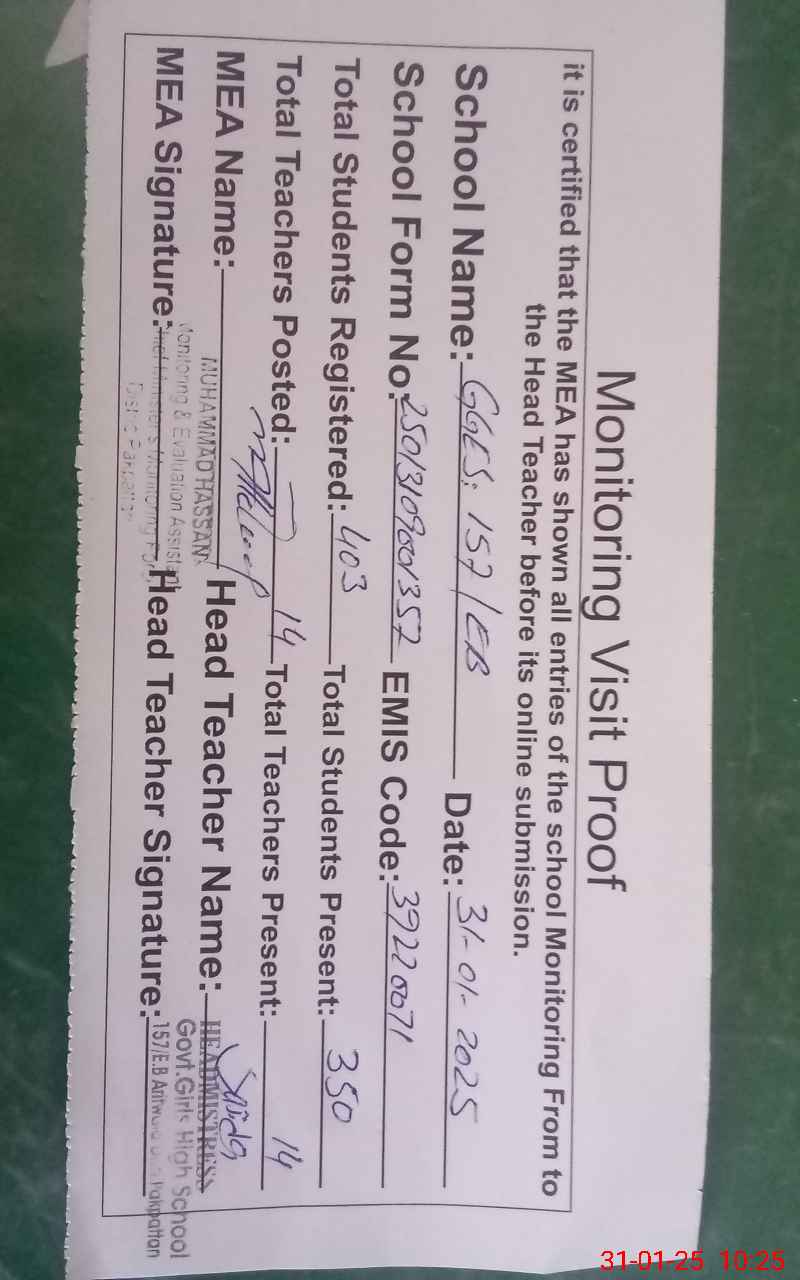 Monitoring Visit Proof
it is certified that the MEA has shown all entries of the school Monitoring From to
the Head Teacher before its online submission.
School Name: GGES. 157/EB Date: 31-01-2025
School Form No. EMIS Code: 39220071
Total Students Registered: 403 Total Students Present: 350
Total Teachers Posted: 14 Total Teachers Present: 14
MEA Name: MUHAMMAD HASSAN Head Teacher Name: Sajida
Monitoring & Evaluation Assistant
MEA Signature: Head Teacher Signature:
HEADMISTRESS
Govt.Girls High School
157/E.B Pakpattan
31-01-25 10:25